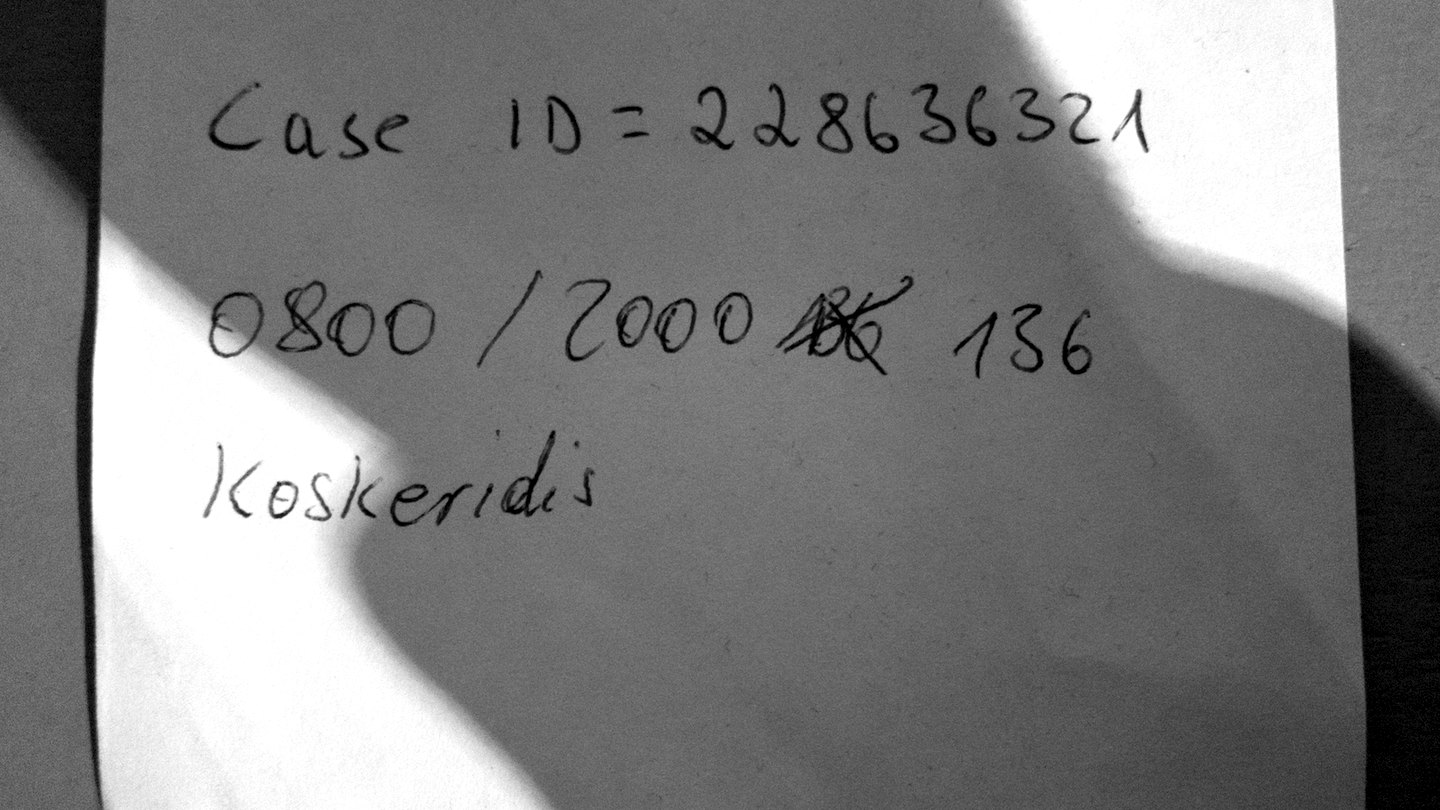 Case ID = 228636321
0800 / 2000 136
Koskeridis